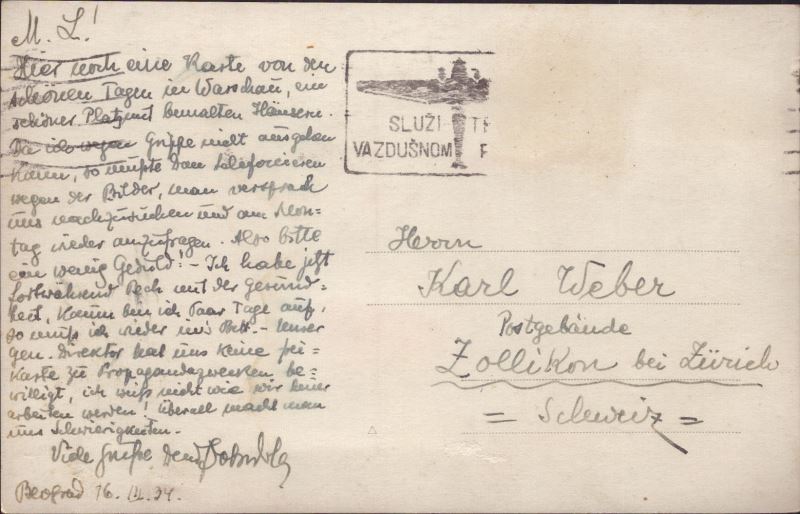 M. L.!
Hier noch eine Karte von den
schönen Tagen in Warschau, ein
schöner Platz mit bemalten Häusern.
Da ich wegen Grippe nicht ausgehen
kann, so mußte Dan telefonieren
wegen der Bilder, man versprach
uns nachzusuchen und am Mon-
tag wieder anzufragen. Also bitte
ein wenig Geduld! - Ich habe jetzt
fortwährend Pech mit der Gesund-
heit, kaum bin ich Paar Tage auf,
so muß ich wieder in's Bett. - Unser
gen. Direktor hat uns keine Frei-
karte zu Propagandazwecken be-
willigt, ich weiß nicht wie wir hier
arbeiten werden! Überall macht man
uns Schwierigkeiten.
Viele Grüße
Beograd 16. 34.
SLUŽI
VAZDUŠNOM
Herrn
Karl Weber
Postgebäude
Zollikon bei Zürich
= Schweiz =